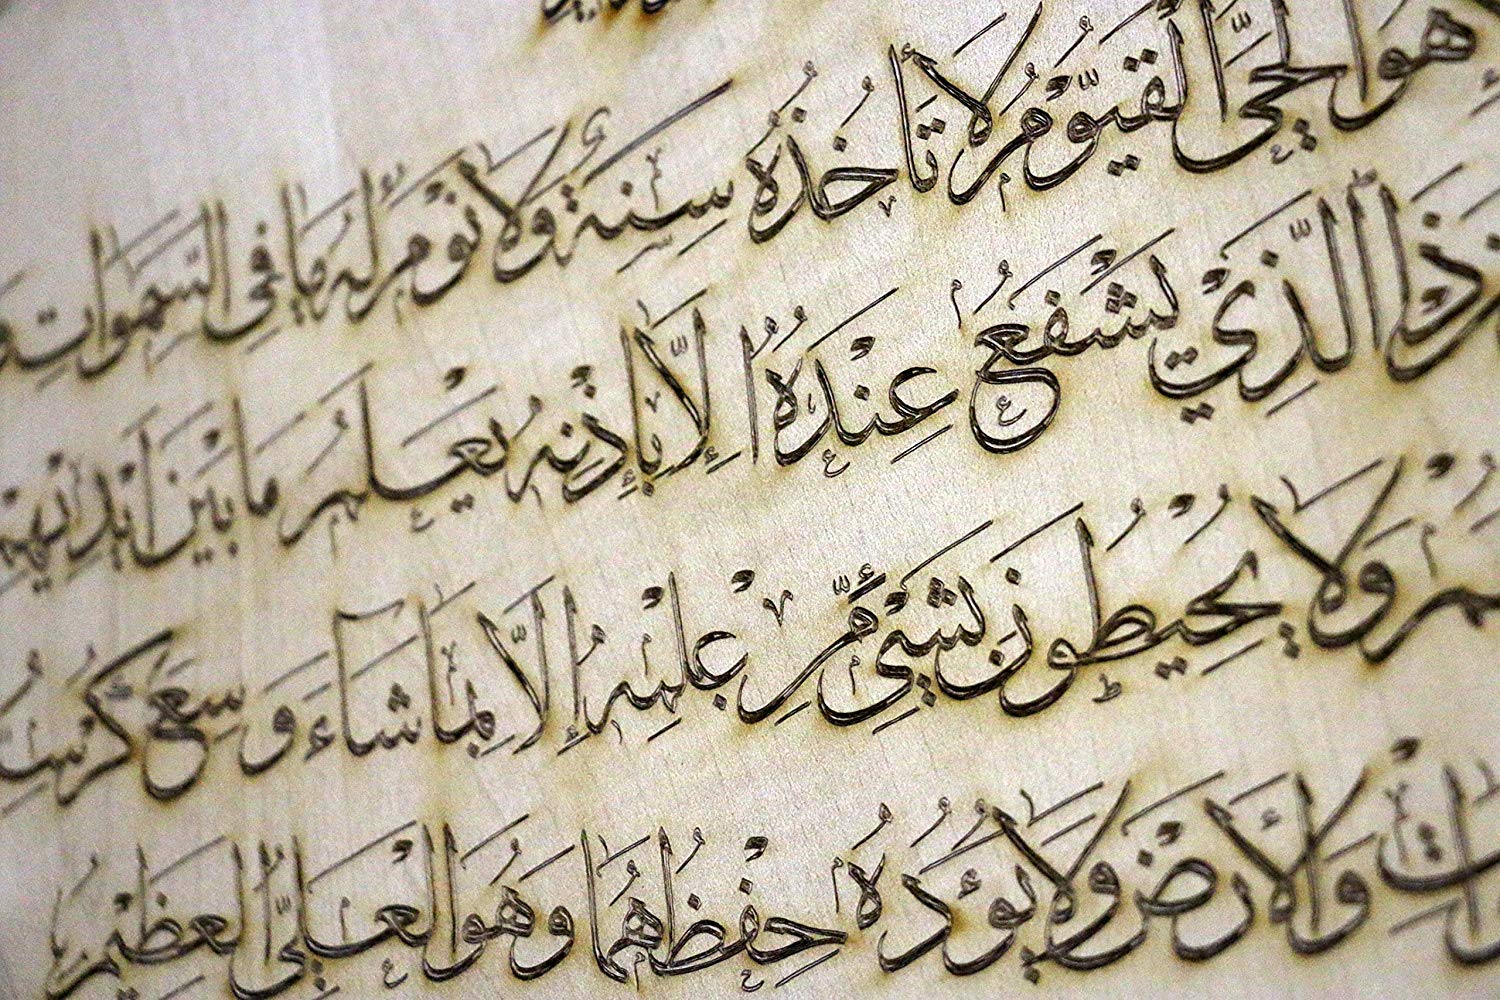 هُوَ الْحَيُّ الْقَيُّوْمُ لَا تَأْخُذُهُ سِنَةٌ وَلَا نَوْمٌ لَهُ مَا فِي السَّمٰوَاتِ
ذَا الَّذِيْ يَشْفَعُ عِنْدَهُ اِلَّا بِإِذْنِهِ يَعْلَمُ مَا بَيْنَ اَيْدِيْهِمْ
وَلَا يُحِيْطُوْنَ بِشَيْءٍ مِّنْ عِلْمِهِ إِلَّا بِمَا شَاءَ وَسِعَ
وَالْأَرْضَ وَلَا يَؤُدُهُ حِفْظُهُمَا وَهُوَ الْعَلِيُّ الْعَظِيْمُ